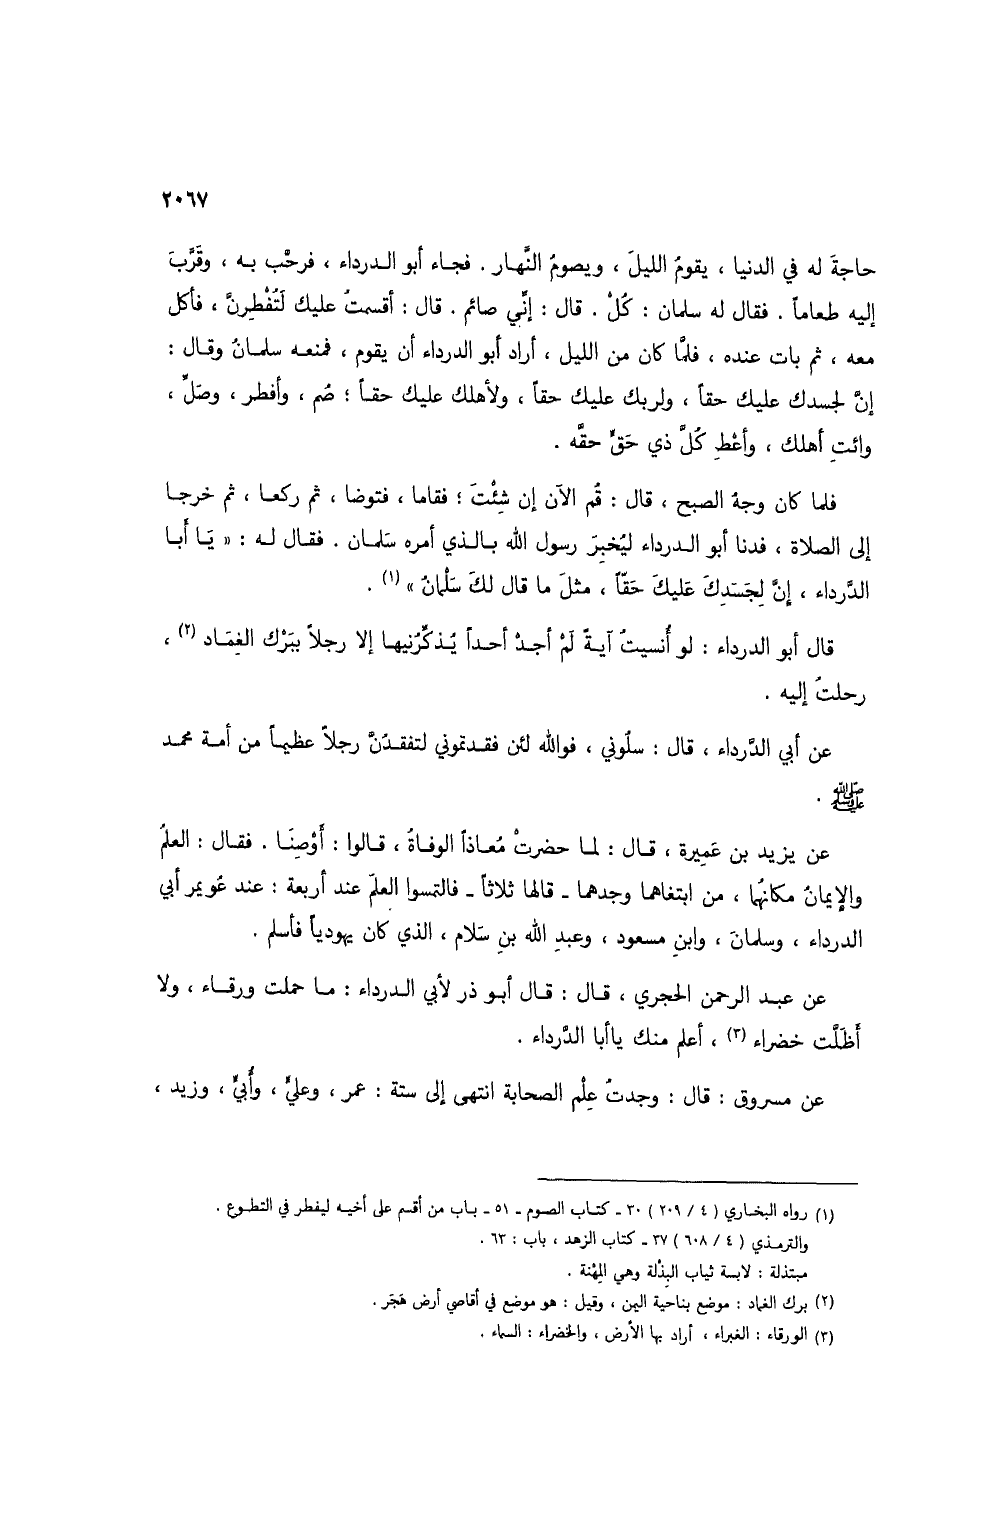 ٢٠٦٧
حاجةَ له في الدنيا ، يقومُ الليلَ ، ويصومُ النَّهار . فجاء أبو الدرداء ، فرحَّب به ، وقَرَّبَ
إليه طعاماً . فقال له سلمان : كُلْ . قال : إنِّي صائم . قال : أقسمتُ عليك لَتُفْطِرنَّ ، فأكل
معه ، ثم بات عنده ، فلمَّا كان من الليل ، أراد أبو الدرداء أن يقوم ، فمنعه سلمانُ وقال :
إنَّ لجسدك عليك حقاً ، ولربك عليك حقاً ، ولأهلك عليك حقاً ؛ صُم ، وأفطر ، وصَلِّ ،
وائتِ أهلك ، وأعْطِ كُلَّ ذي حَقٍّ حقَّه .
فلما كان وجهُ الصبح ، قال : قُم الآن إن شِئْتَ ؛ فقاما ، فتوضا ، ثم ركعا ، ثم خرجا
إلى الصلاة ، فدنا أبو الدرداء ليُخبِرَ رسول الله بالذي أمره سَلمان . فقال له : « يَا أَبا
الدَّرداء ، إنَّ لِجَسَدِكَ عَليكَ حَقّاً ، مثلَ ما قال لكَ سَلْمانُ » (١) .
قال أبو الدرداء : لو أُنسيتُ آيةً لَمْ أجدْ أحداً يُذكِّرُنيها إلا رجلاً ببَرْك الغِمَاد (٢) ،
رحلتُ إليه .
عن أبي الدَّرداء ، قال : سلُوني ، فوالله لئن فقدتموني لتفقدُنَّ رجلاً عظيماً من أمة محمد
ﷺ .
عن يزيد بن عَمِيرة ، قال : لما حضرتْ مُعاذاً الوفاةُ ، قالوا : أَوْصِنَا . فقال : العلمُ
والإيمانُ مكانَهُما ، من ابتغاهما وجدهما ـ قالها ثلاثاً ـ فالتمسوا العلمَ عند أربعة : عند عُويمر أبي
الدرداء ، وسلمانَ ، وابنِ مسعود ، وعبدِ الله بنِ سَلام ، الذي كان يهودياً فأسلم .
عن عبد الرحمن الحجري ، قال : قال أبو ذر لأبي الدرداء : ما حملت ورقاء ، ولا
أَظلَّت خضراء (٣) ، أعلم منك ياأبا الدَّرداء .
عن مسروق : قال : وجدتُ عِلْم الصحابة انتهى إلى ستة : عمر ، وعليٍّ ، وأُبيٍّ ، وزيد ،
(١) رواه البخاري ( ٤ / ٢٠٩ ) ٣٠ ـ كتاب الصوم ـ ٥١ ـ باب من أقسم على أخيه ليفطر في التطوع .
والترمذي ( ٤ / ٦٠٨ ) ٣٧ ـ كتاب الزهد ، باب : ٦٣ .
مبتذلة : لابسة ثياب البِذْلة وهي المِهْنة .
(٢) برك الغماد : موضع بناحية اليمن ، وقيل : هو موضع في أقاصي أرض هَجَر .
(٣) الورقاء : الغبراء ، أراد بها الأرض ، والخضراء : السماء .